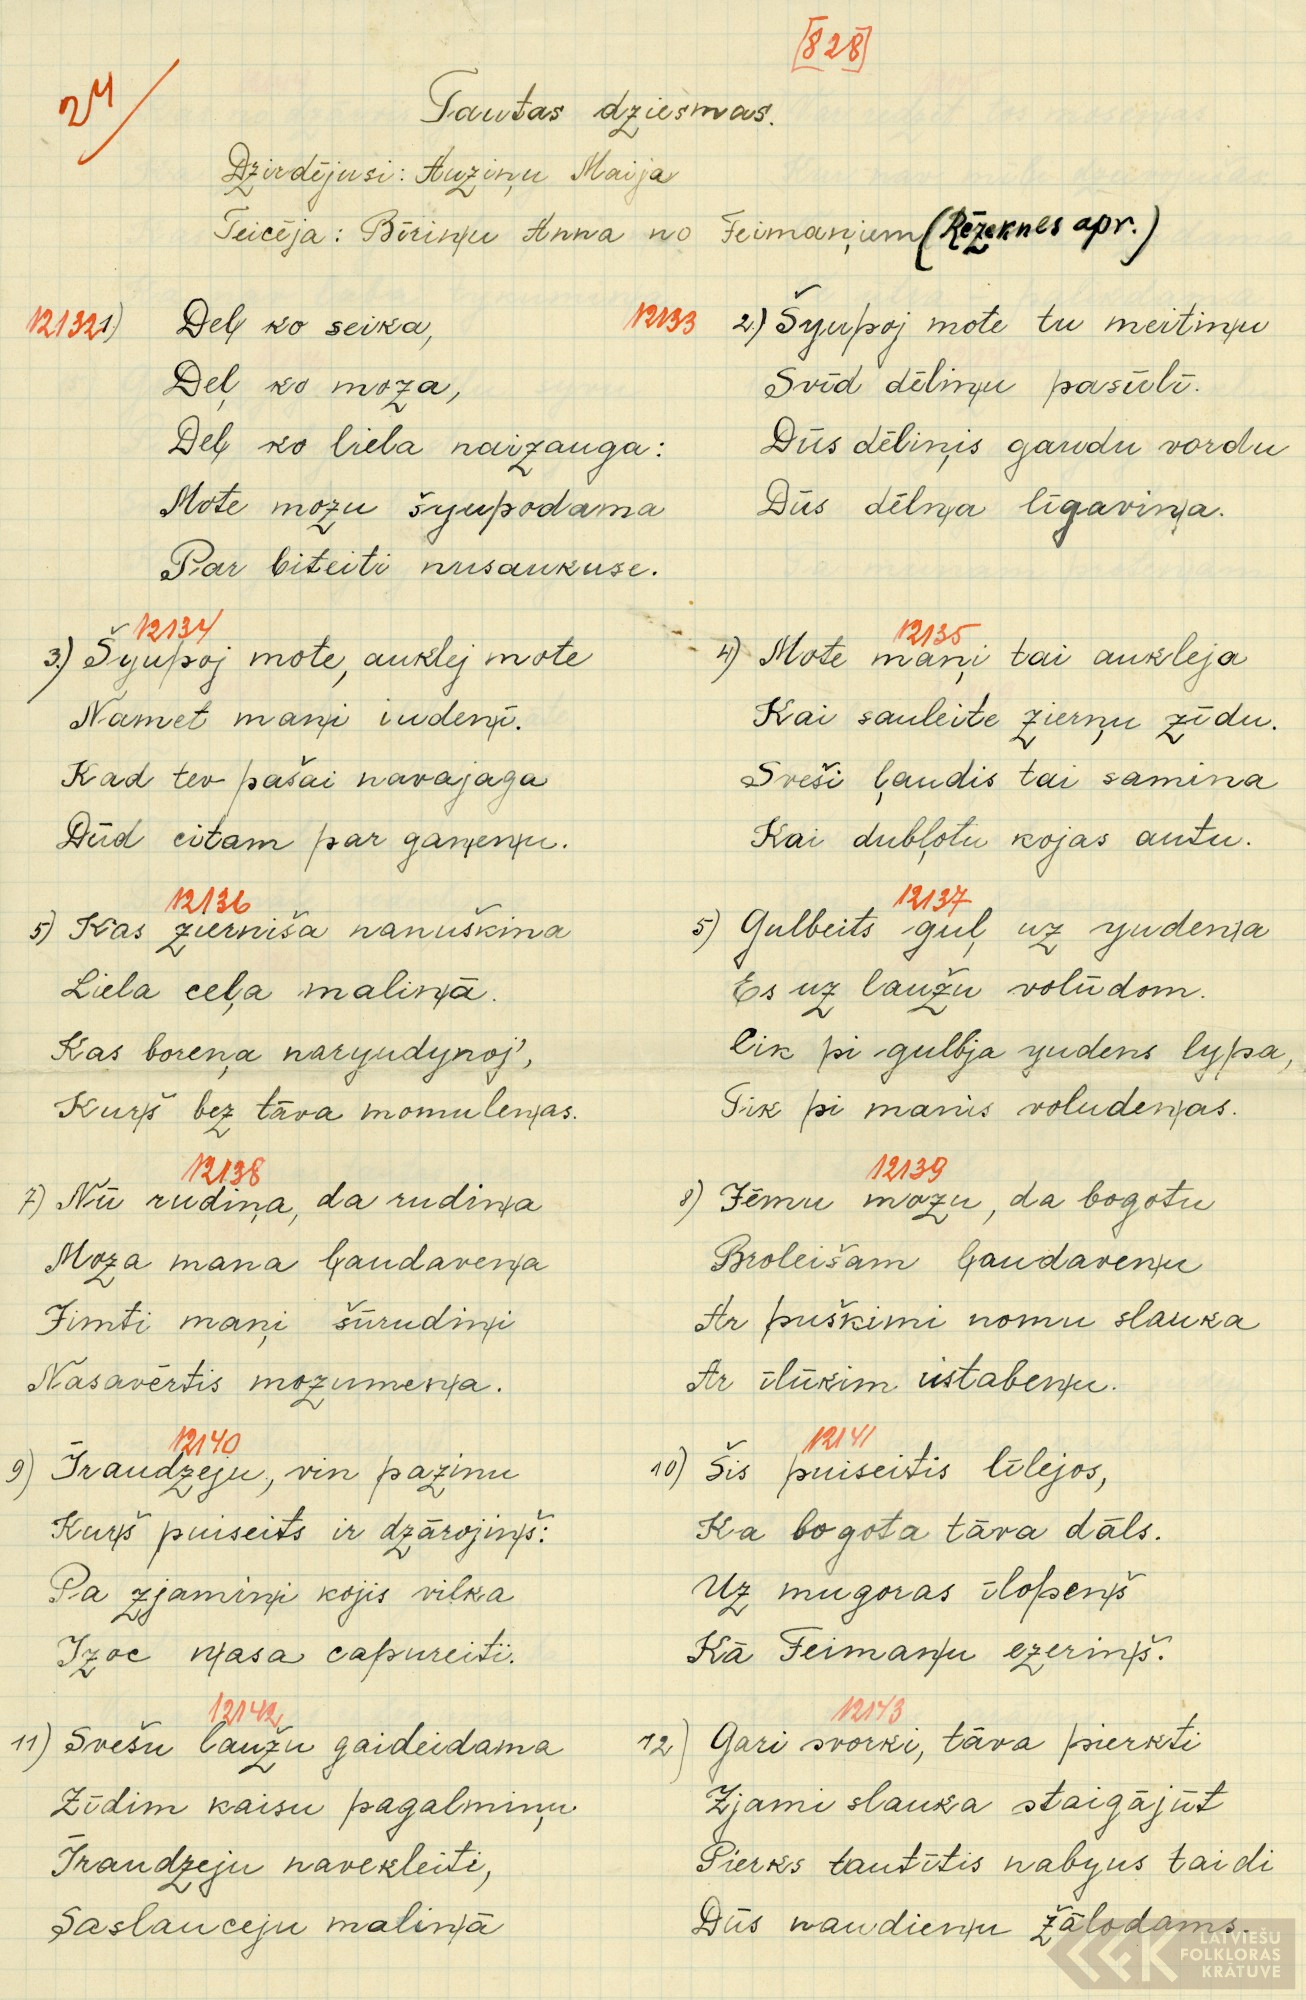 [828]
24/
Tautas dziesmas.
Dzirdējusi: Auziņu Maija
Teicēja: Bēriņu Anna no Feimaņiem (Rēzeknes apr.)
12132 1) Deļ ko seika,
Deļ ko moza,
Deļ ko liela naizauga:
Mote mozu šyupodama
Par biteiti nusaukuse.
12133 2) Šyupoj mote tu meitiņu
Svīd dēliņu pasūlī.
Dūs dēliņis gaudu vordu
Dūs dēlņa līgaviņa.
12134
3.) Šyupoj mote, auklej mote
Namet maņi iudenī.
Kad tev pašai navajaga
Dūd citam par gaņeņu.
12135
4) Mote maņi tai aukleja
Kai sauleite zierņu zīdu.
Sveši ļaudis tai samina
Kai dubļotu kojas autu.
12136
5) Kas zierniša nanuškina
Liela ceļa maliņā.
Kas boreņa naryudynoj',
Kurš bez tāva momuleņas.
12137
5) Gulbeits guļ uz yudeņa
Es uz laužu volūdom.
Cik pi gulbja yudens lypa,
Tik pi manis voludeņas.
12138
7) Nū rudiņa, da rudiņa
Moza mana ļaudaveņa
Jimti maņi šūrudiņi
Nasavērtis mozumeņa.
12139
8) Jēmu mozu, da bogotu
Broleišam ļaudaveņu
Ar puškimi nomu slauka
Ar īlūkim ustabeņu.
12140
9) Īraudzeju, vin pazinu
Kurš puiseits ir dzārojiņš:
Pa zjamiņi kojis vilka
Izoc ņasa capureiti.
12141
10) Šis puiseitis līlejos,
Ka bogota tāva dāls.
Uz mugoras īlopeņš
Kā Feimaņu ezeriņš.
12142
11) Svešu laužu gaideidama
Zīdim kaisu pagalmiņu
Īraudzeju navekleiti,
Saslauceju maliņā
12143
12) Gari svorki, tāva pierkti
Zjami slauka staigājūt
Pierks tautītis nabyus taidi
Dūs naudieņu žālodams.
LATVIEŠU
FOLKLORAS
KRĀTUVE